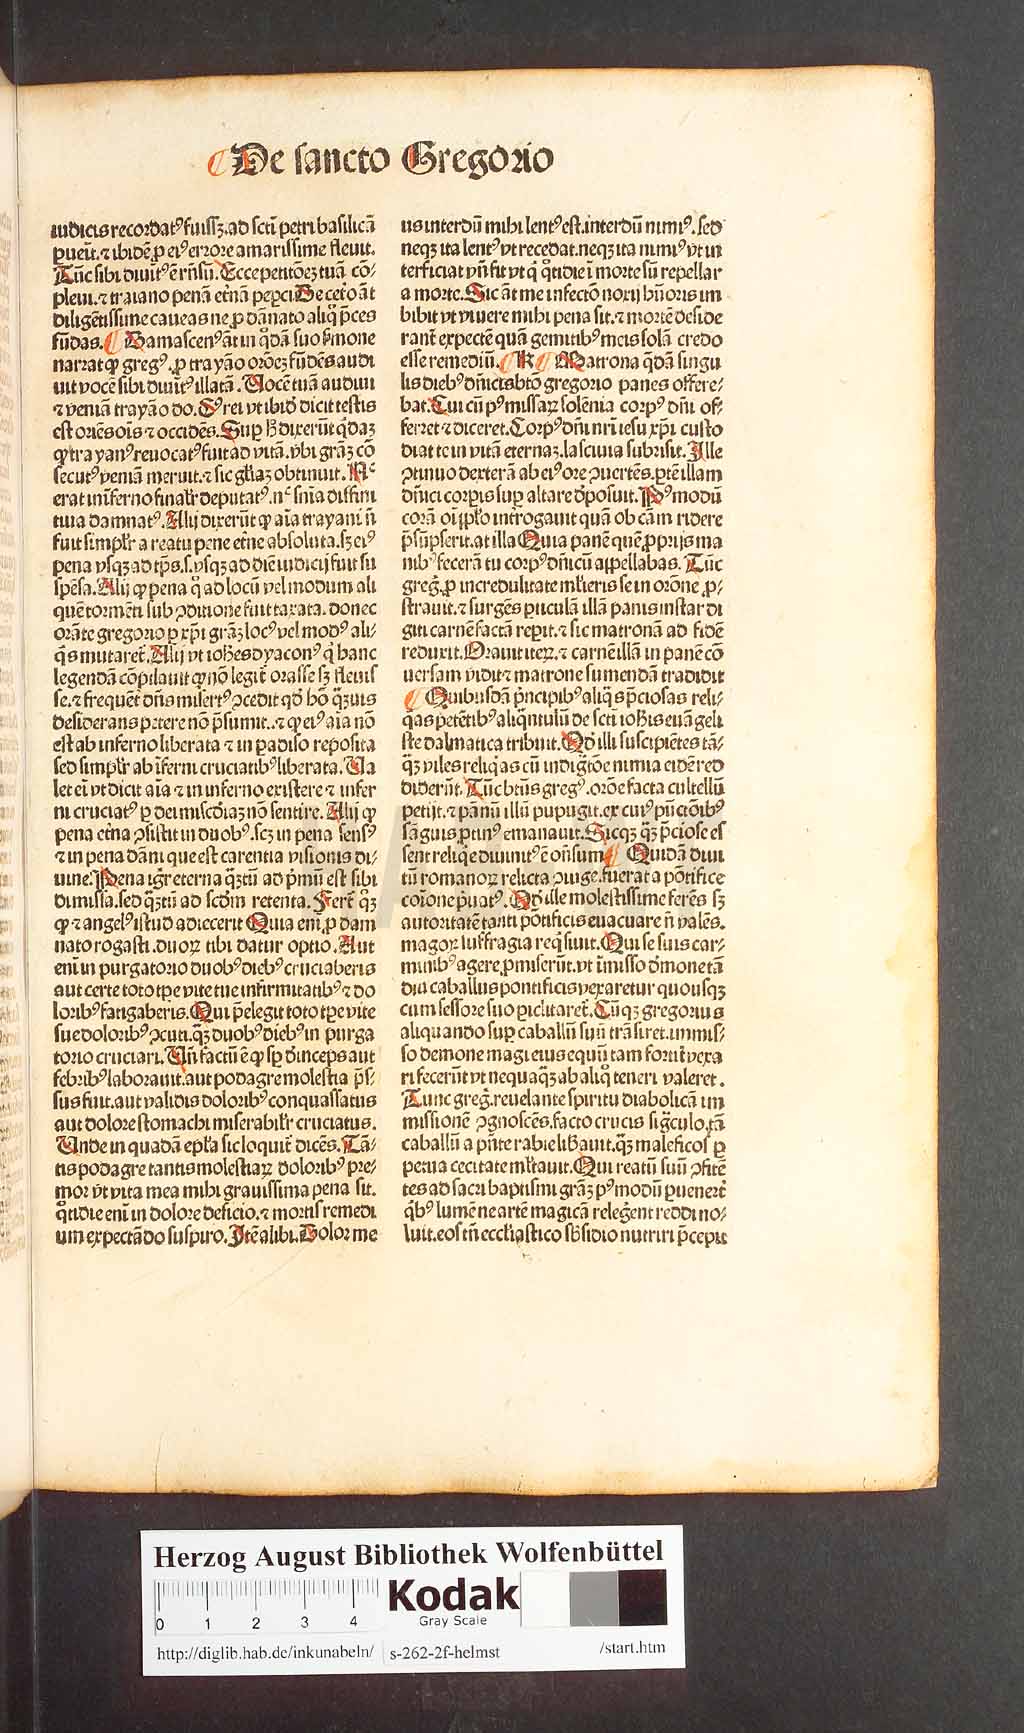 De sancto Gregorio
iudicis recordatꝰ fuissꝫ.ad scti petri basilicā
ꝑueīt.⁊ ibidē ꝓ eiꝰ errore amarissime fleuit.
Tūc sibi diuītꝰ ē rn̄sū. Ecce petitōeꝫ tuā cō-
pleui.⁊ traiano penā etn̄a peꝑci De ceto āt
diligētissime caueas ne ꝓ dānato aliq̄ p̄ces
fūdas. Damascenꝰ āt in q̊dā suo ẜmone
narrat ꝙ gregꝰ.ꝓ trayāo orōeꝫ fūdēs audi
uit vocē sibi diuītꝰ illatā. Uocē tuā audiui
⁊ veniā trayāo do. Cꝰ rei vt ibid dicit testis
est oriēs oīs ⁊ occidēs. Suꝑ ħ dixerūt q̇daꝫ
ꝙ trayanꝰ reuocatꝰ fuit ad vitā. vbi grāꝫ cō
secutꝰ veniā meruit.⁊ sic gl̄iaꝫ obtinuit. Nᶜ
erat in īferno finalr̄ deputatꝰ. nᶜ sn̄ia diffini
tiua damnatꝰ. Alij dixerūt ꝙ aīa trayani n̄
fuit simplr̄ a reatu pene etn̄e absoluta. sꝫ eiꝰ
pena vsqꝫ ad tp̄s.s.vsqꝫ ad diē iudicij fuit su
spēsa. Alij ꝙ pena q̊ ad locū vel modum ali
quē tormēti sub ꝯditione fuit taxata. donec
orāte gregorio ꝑ xp̄i grāꝫ locꝰ vel modꝰ ali-
q̄s mutaret̄. Alij vt ioħes dyaconꝰ q̇ hanc
legendā cōpilauit ꝙ nō legit̄ orasse sꝫ fleuis
se.⁊ frequēt̄ dn̄s misert̄ꝰ ꝯcedit qd̄ hō q̄ꝫuis
desiderans petere nō p̄sumit..⁊ ꝙ eiꝰ aīa nō
est ab inferno liberata ⁊ in ꝑadiso reposita
sed simplr̄ ab īferni cruciatibꝰ liberata. Ua
let eī vt dicit aīa ⁊ in inferno existere ⁊ infer
ni cruciatꝰ ꝑ dei miscdiaꝫ nō sentire. Alij ꝙ
pena etn̄a ꝯsistit in duobꝰ. scꝫ in pena sensꝰ
⁊ in pena dāni que est carentia visionis di-
uine. Pena igr̄ eterna q̄ꝫtū ad p̄mū est sibi
dimissa. sed q̄ꝫtū ad scdm retenta. Fert̄ q̄ꝫ
ꝙ ⁊ angelꝰ istud adiecerit Quia eni ꝓ dam
nato rogasti. duoꝝ tibi datur optio. Aut
eni in purgatorio duobꝰ diebꝰ cruciaberis
aut certe toto tp̄e vite tue infirmitatibꝰ ⁊ do
loribꝰ fatigaberis. Qui p̄elegit toto tp̄e vite
sue doloribꝰ ꝯcuti.q̄ꝫ duobꝰ diebꝰ in purga
torio cruciari. Un̄ factū ē ꝙ sp̄ d̄inceps aut
febribꝰ laborauit.aut podagre molestia p̄s-
sus fuit.aut validis doloribꝰ conquassatus
aut dolore stomachi miserabilr̄ cruciatus.
Unde in quadā epl̄a sic loquit̄ dicēs. Tā-
tis podagre tantis molestiaꝝ doloribꝰ pre-
mor vt vita mea mihi grauissima pena sit.
q̊tidie eni in dolore deficio.⁊ mortis remedi
um expectādo suspiro. Itē alibi. Dolor me
us interdū mihi lentꝰ est.interdū nimiꝰ. sed
neqꝫ ita lentꝰ vt recedat.neqꝫ ita nimiꝰ vt in
terficiat vn̄ fit vt q̇ q̊tidie ī morte sū repellar
a morte. Sic āt me infectō noxij hūoris im
bibit vt viuere mihi pena sit.⁊ mortē deside
rant̄ expectē quā gemitibꝰ meis solā credo
esse remediū. R Matrona q̄dā singu
lis diebꝰ dn̄icis bt̄o gregorio panes offere-
bat. Cui cū pꝰ missaꝝ solēnia corpꝰ dn̄i of-
ferret ⁊ diceret. Corpꝰ dn̄i nri iesu xp̄i custo
diat te in vitā eternaꝫ.lasciuia subrisit. Ille
ꝯtinuo dexterā ab eiꝰ ore ꝯuertēs.ꝑtē illam
dn̄ici corpis suꝑ altare d̓posuit. Pꝰ modū
corā oī pl̄o intr̄ogauit quā ob cām ridere
p̄sūpserit.at illa Quia panē quē ꝓprijs ma
nibꝰ feceram tu corpꝰ dn̄icū appellabas. Tūc
greg̓.ꝓ incredulitate ml̄ieris se in orōne ꝓ-
strauit.⁊ surgēs ꝑticulā illā panis instar di
giti carnē factā repit.⁊ sic matronā ad fidē
reduxit. Orauit iteꝝ.⁊ carnē illā in panē cō
uersam vidit ⁊ matrone sumendā tradidit
Quibusdā p̄ncipibꝰ aliq̄s p̄ciosas reli-
q̄as petētibꝰ aliq̄ntulū de scti ioħis euāgeli
ste dalmatica tribuit. Qd̄ illi suscipiētes tā-
q̄ꝫ viles reliq̄as cū indig̓tōe nimia eidē red
diderūt. Tūc btūs gregꝰ.orōe facta cultellū
petijt.⁊ pānū illū pupugit.ex cuiꝰ pūctiōibꝰ
sāguis ꝓtinꝰ emanauit. Sicqꝫ q̄ꝫ p̄ciose es
sent reliq̄e diuinitꝰ ē on̄sum Quidā diui
tū romanoꝝ relicta ꝯiuge.fuerat a pōtifice
cōione p̄uatꝰ. Qd̄ ille molestissime ferēs sꝫ
autoritatē tanti pōtificis euacuare n̄ valēs.
magoꝝ suffragia req̇siuit. Qui se suis car-
minibꝰ agere ꝓmiserūt.vt īmisso d̓mone tā
diu caballus pontificis vexaretur quousqꝫ
cum sessore suo ꝑiclitaret̄. Cūqꝫ gregorius
aliquando suꝑ caballū suū trāsiret.immis-
so demone magi eius equū tam fortit̄ vexa
ri fecerūt vt nequaq̄ꝫ ab aliq̊ teneri valeret.
Tunc greg̓.reuelante spiritu diabolicā im
missionē ꝯgnoscēs.facto crucis sig̓culo.⁊ā
caballū a pn̄te rabie lib̓auit.q̄ꝫ maleficos ꝑ
petua cecitate ml̄tauit. Qui reatū suū ꝯfitē
tes ad sacri baptismi grāꝫ pꝰ modū ꝑuenert̄
q̇bꝰ lumē ne artē magicā relegerent reddi no-
luit.eos tn̄ eccl̄iastico sb̓sidio nutriri p̄cepit
Herzog August Bibliothek Wolfenbüttel
0 1 2 3 4
Kodak
Gray Scale
http://diglib.hab.de/inkunabeln/ s-262-2f-helmst /start.htm